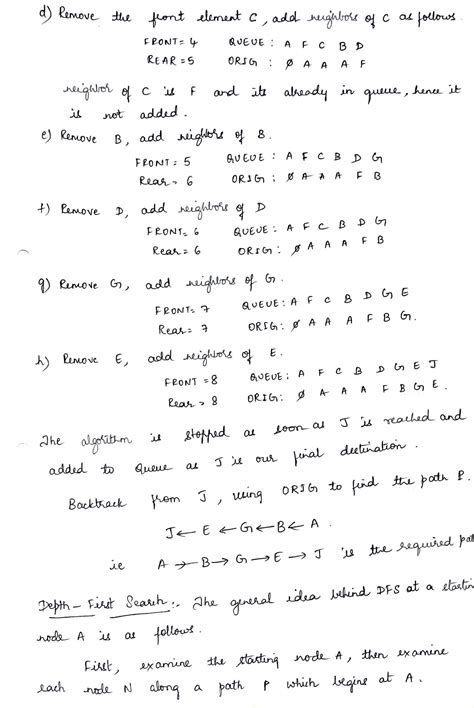 d) Remove the front element C, add neighbors of C as follows.
FRONT = 4 QUEUE : A F C B D
REAR = 5 ORIG : Ø A A A F
neighbor of C is F and its already in queue, hence it
is not added.
e) Remove B, add neighbors of B.
FRONT : 5 QUEUE : A F C B D G
Rear = 6 ORIG : Ø A A A F B
f) Remove D, add neighbors of D
FRONT = 6 QUEUE : A F C B D G
Rear = 6 ORIG : Ø A A A F B
g) Remove G, add neighbors of G.
FRONT = 7 QUEUE : A F C B D G E
Rear = 7 ORIG : Ø A A A F B G.
h) Remove E, add neighbors of E.
FRONT = 8 QUEUE : A F C B D G E J
Rear = 8 ORIG : Ø A A A F B G E.
The algorithm is stopped as soon as J is reached and
added to Queue as J is our final destination.
Backtrack from J, using ORIG to find the path P.
J ← E ← G ← B ← A.
ie A → B → G → E → J is the required pat
Depth-First Search:. The general idea behind DFS at a startin
node A is as follows.
First, examine the starting node A, then examine
each node N along a path P which begins at A.